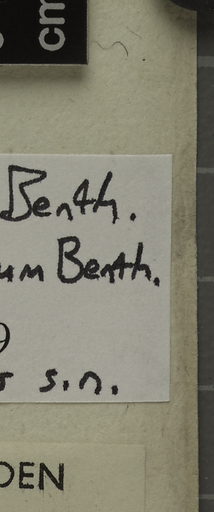 cm
Benth.
um Benth.
9
s.n.
DEN